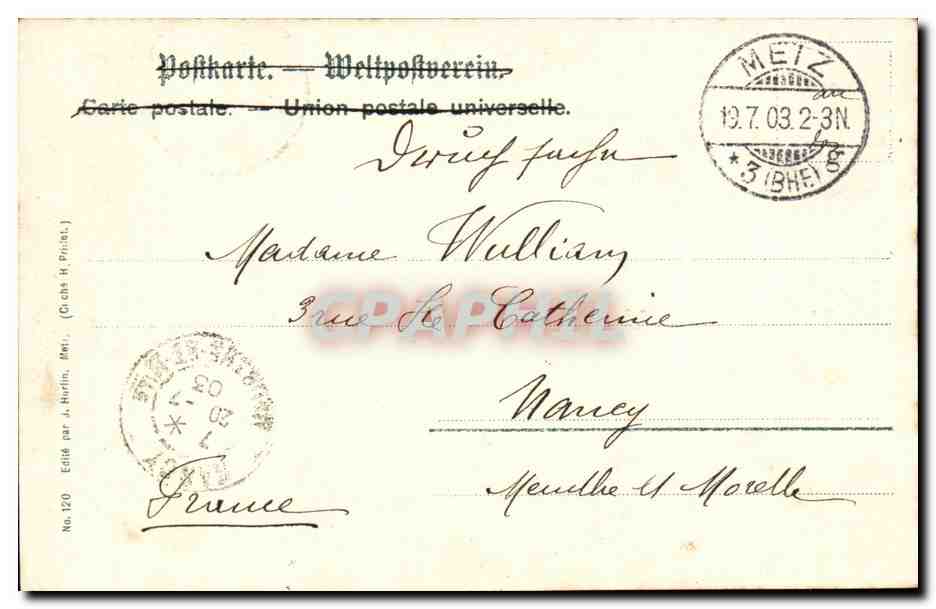 Postkarte. — Weltpostverein.
Carte postale. — Union postale universelle.
METZ
19.7.03.2-3N.
* 3 (BHF.)
Drucksache
Madame Wulliam
3 rue Ste Catherine
Nancy
Meurthe et Moselle
France
NANCY
MEURTHE-ET-MLLE
7
20 -7
03
No. 120 Edité par J. Hurlin, Metz. (Cliché H. Prillot.)
CPAPHIL